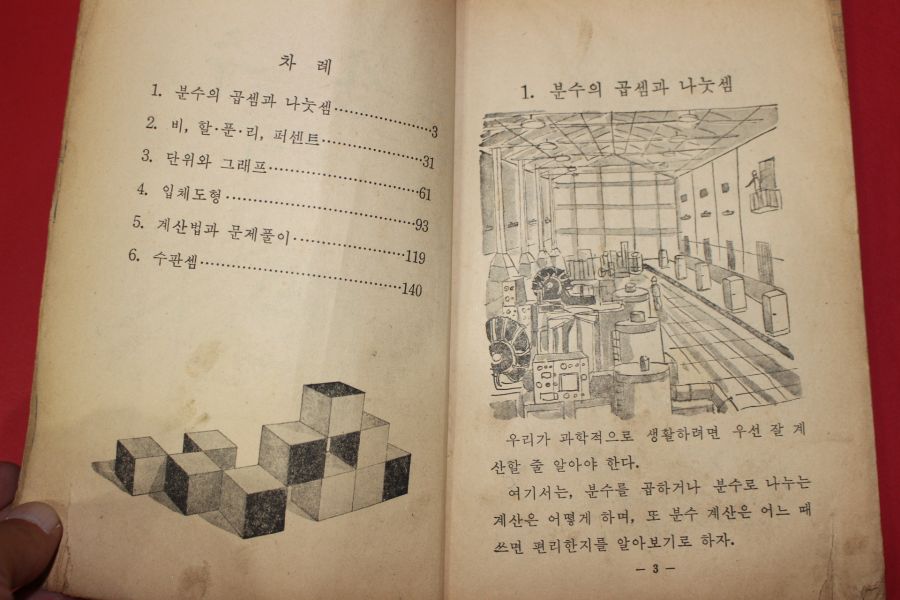 차 례
1. 분수의 곱셈과 나눗셈……………3
2. 비, 할·푼·리, 퍼센트……………31
3. 단위와 그래프……………61
4. 입체도형……………93
5. 계산법과 문제풀이……………119
6. 수판셈……………140
1. 분수의 곱셈과 나눗셈
우리가 과학적으로 생활하려면 우선 잘 계
산할 줄 알아야 한다.
여기서는, 분수를 곱하거나 분수로 나누는
계산은 어떻게 하며, 또 분수 계산은 어느 때
쓰면 편리한지를 알아보기로 하자.
— 3 —